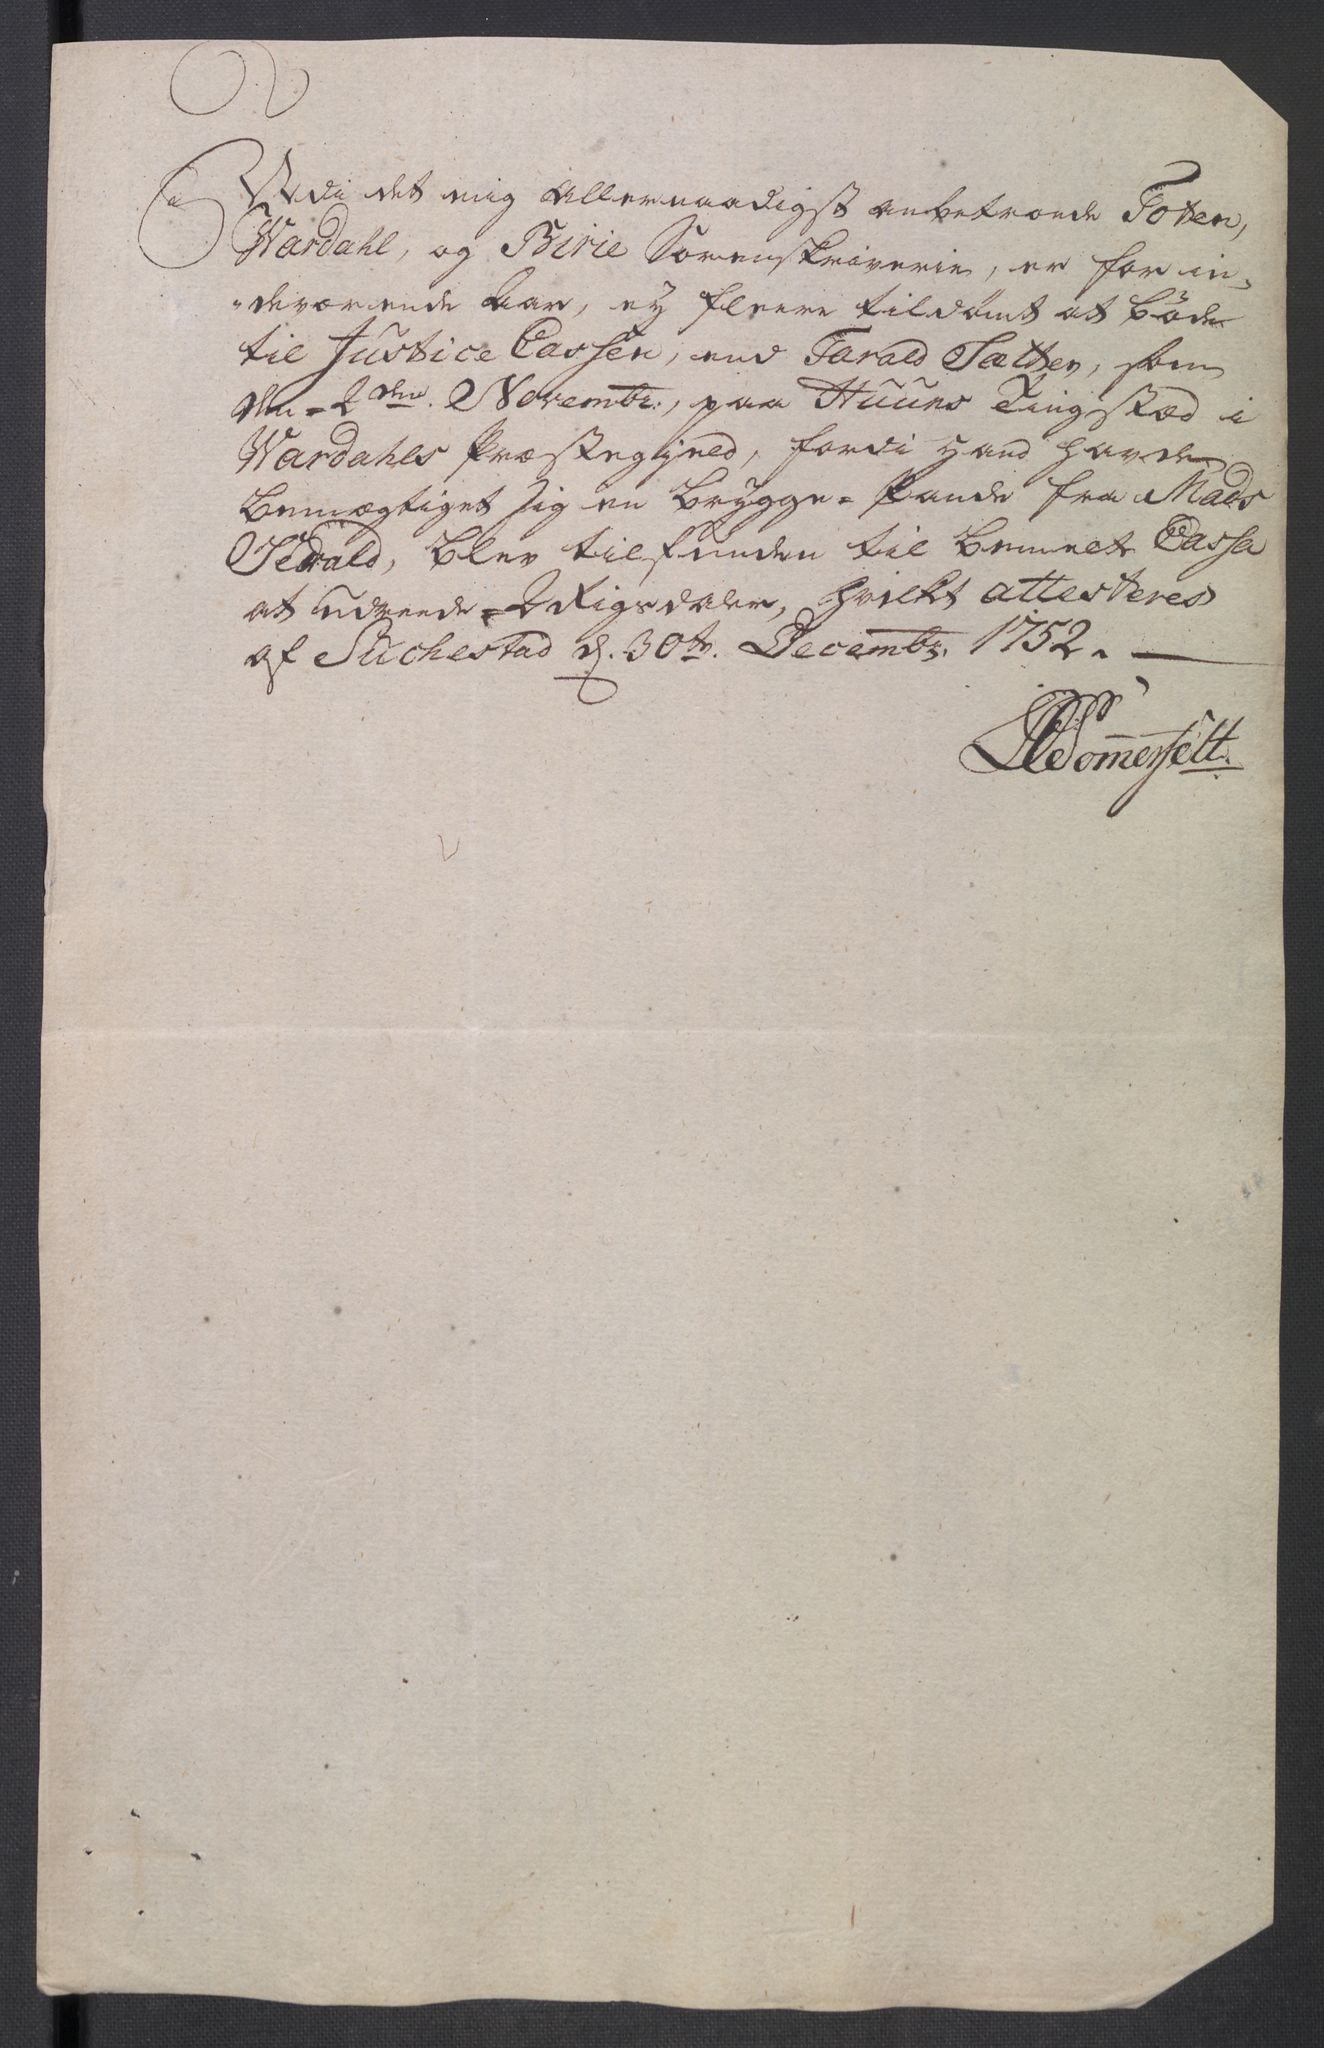 Udi det mig Allernaadigst anbetroede Toten,
Wardahl, og Birie Sorenskriverie, er for in-
deværende Aar, ey fleere tildømt at bøde
til Justice Cassen, end Tarald Sætter, som
den 2den Novembr., paa Huuns Tingstæd i
Wardahls Præstegjæld, fordi hand havde
bemægtiget sig en brygge-Pande fra Mads
blev tilfunden til bemelte Cassa
at udreede 2 Rigsdaler, hvilket attesteres
af Suchestad d. 30te. Decembr. 1752.
Somerfelt.